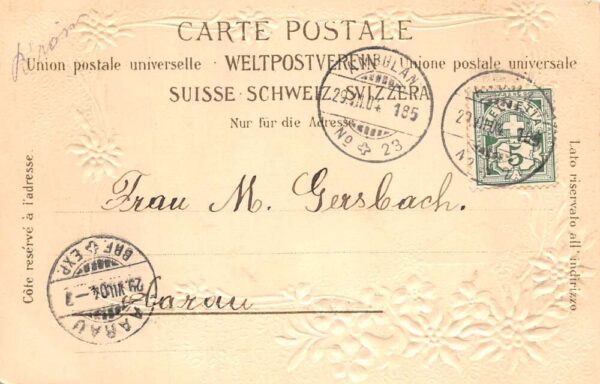 CARTE POSTALE
Union postale universelle · WELTPOSTVEREIN · Unione postale universale
SUISSE · SCHWEIZ · SVIZZERA
Nur für die Adresse
Côte resérvé à l'adresse
Lato riservato all'indirizzo
AMBULANT
29.VII.04 185
No 23
HELVETIA
5
Frau M. Gersbach.
Aarau
AARAU
29.VII.04
BRF. EXP.